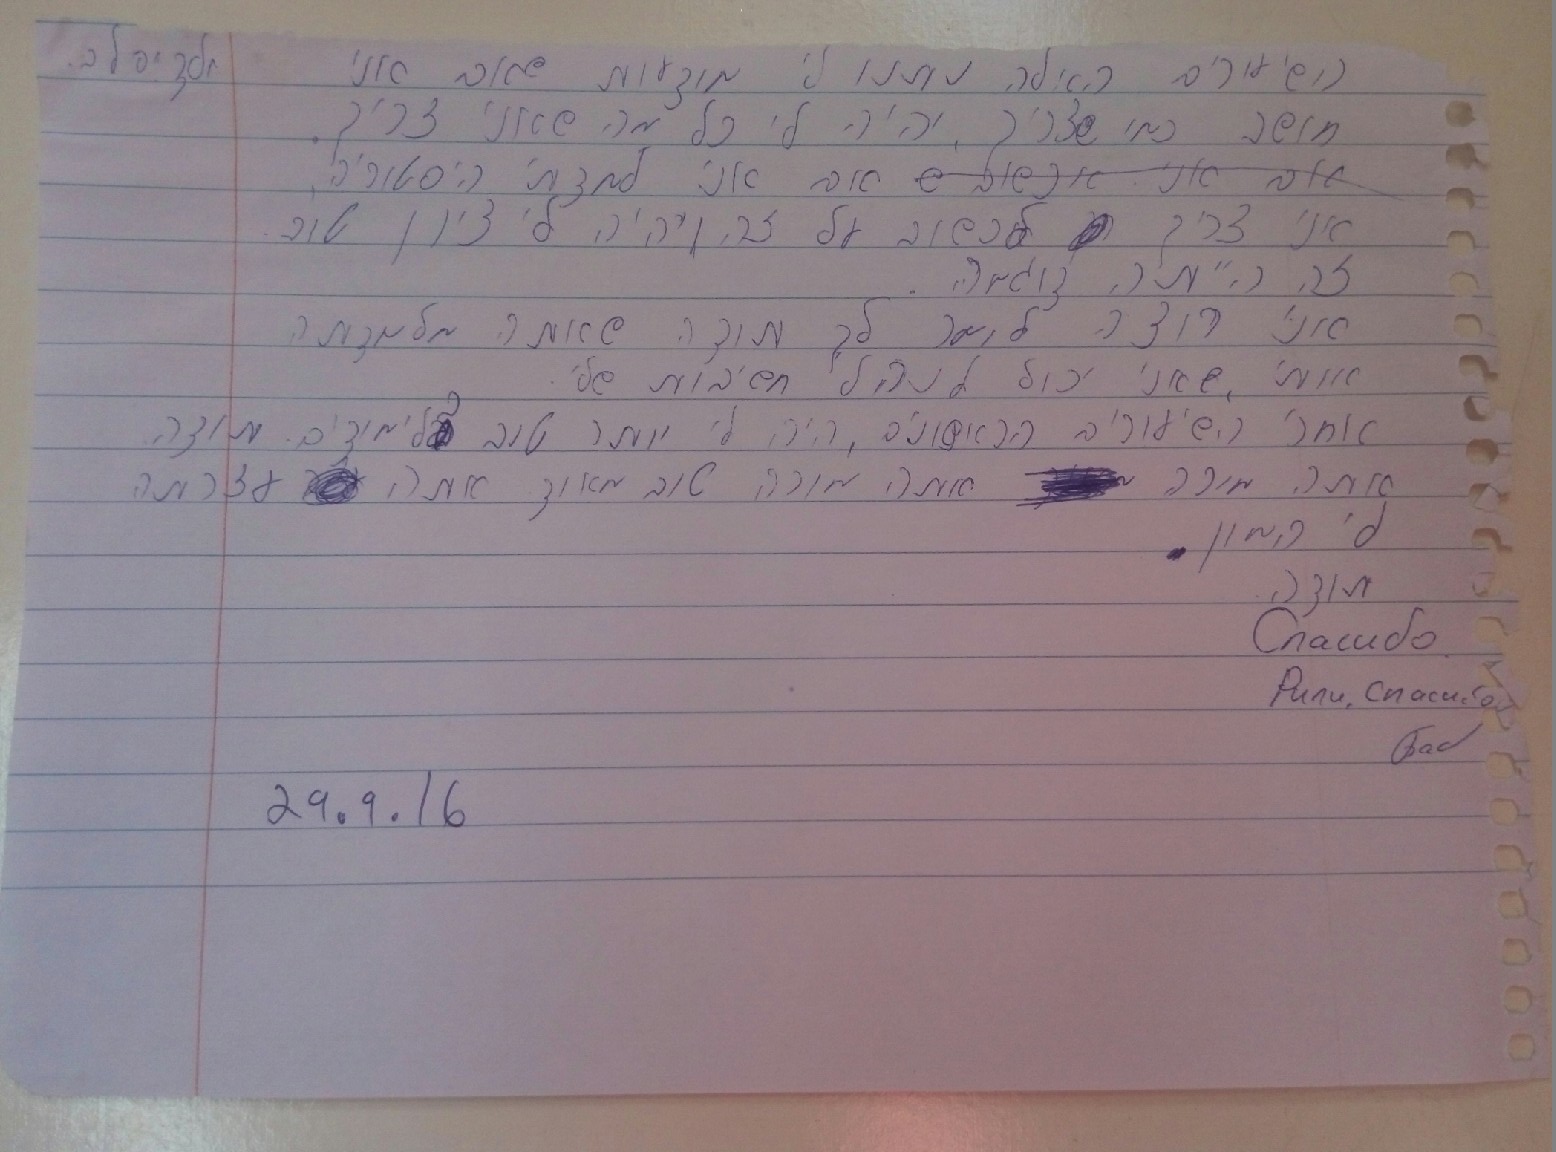 השיעורים האילה נותנו לי מודעות שאם אני
חושב כמו שצריך, יהיה לי כל מה שאני צריך.
אם אני אחשוב ש אם אני למדתי היסטוריה,
אני צריך לחשוב על זה ויהיה לי ציון טוב.
זה הייתה דוגמה.
אני רוצה לומר לך תודה שאתה מלמדתה
אותי, שאני יכול לנהל חשיבות שלי.
אחרי השיעורים הראשונים, היה לי יותר טוב בלימודים. תודה.
אתה מורה אתה מורה טוב מאוד אתה עזרתה
לי המון.
תודה
Спасибо
Рили, Спасибо
29.9.16